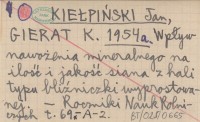 KIEŁPIŃSKI Jan,
GIERAT K. 1954a. Wpływ
nawożenia mineralnego na
ilość i jakość siana z hali
typu bliźniczki wyprostowa-
nej — Roczniki Nauk Rolni-
czych t. 69-A-2.
BT/020665